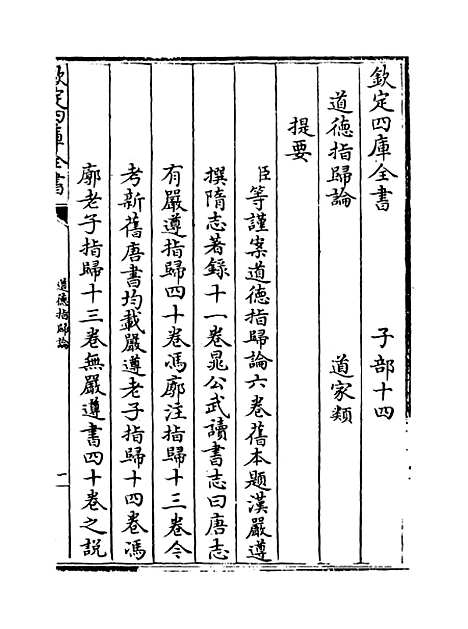 欽定四庫全書 子部十四
道德指歸論 道家類
提要
臣等謹案道德指歸論六卷舊本題漢嚴遵
撰隋志著錄十一卷晁公武讀書志曰唐志
有嚴遵指歸四十卷馮廓注指歸十三卷今
考新舊唐書均載嚴遵老子指歸十四卷馮
廓老子指歸十三卷無嚴遵書四十卷之說
欽定四庫全書
道德指歸論
一